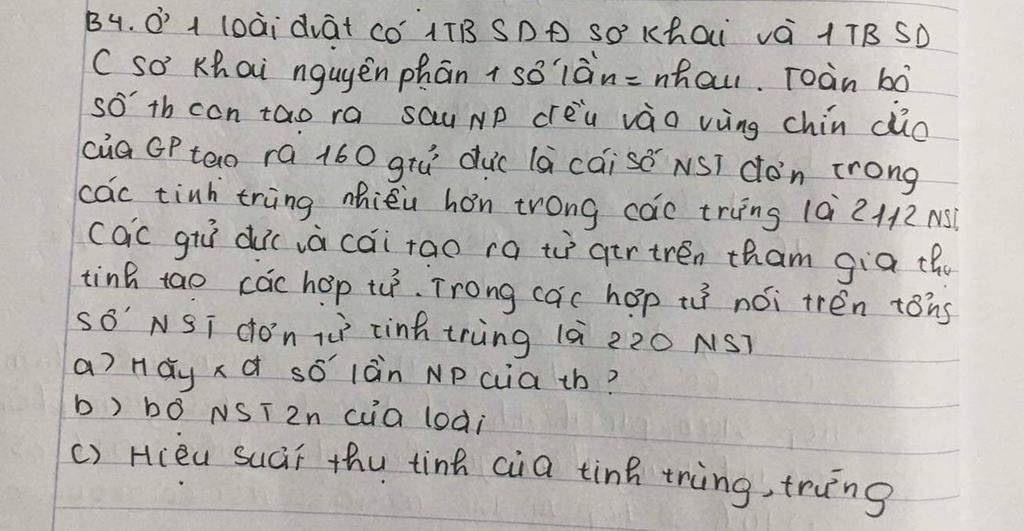 B4. Ở 1 loài đvật có 1TB SDĐ sơ khai và 1 TB SD
C sơ khai nguyên phân 1 số lần = nhau. Toàn bộ
số tb con tạo ra sau NP đều vào vùng chín của
của GP tạo ra 160 gtử đực là cái số NST đơn trong
các tinh trùng nhiều hơn trong các trứng là 2112 NST
Các gtử đực và cái tạo ra từ qtr trên tham gia thụ
tinh tạo các hợp tử. Trong các hợp tử nói trên tổng
số NST đơn từ tinh trùng là 220 NST
a) Hãy xđ số lần NP của tb?
b) bộ NST 2n của loài
c) Hiệu suất thụ tinh của tinh trùng, trứng